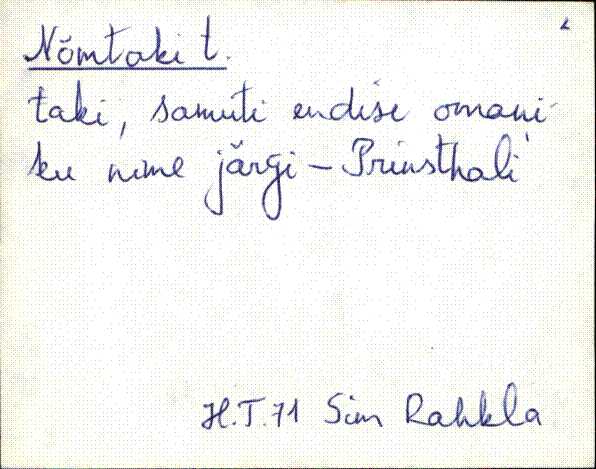 2
Nõmtaki t.
taki, samuti endise omani-
ku nime järgi – Prinsthali
H.T.71 Sim Rahkla